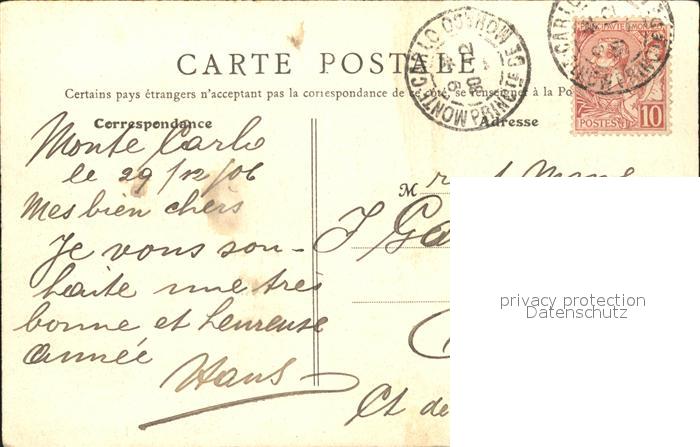 CARTE POSTALE
Certains pays étrangers n'acceptant pas la correspondance de ce côté, se renseigner à la Po
Correspondance
Adresse
Monte Carlo
le 29/12/06
Mes bien chers
Je vous sou-
haite une très
bonne et heureuse
année
Hans
M
J Ga
Ct de
MONTE-CARLO
PRINCIPTE DE MONACO
MONTE-CARLO
10
POSTES
privacy protection
Datenschutz